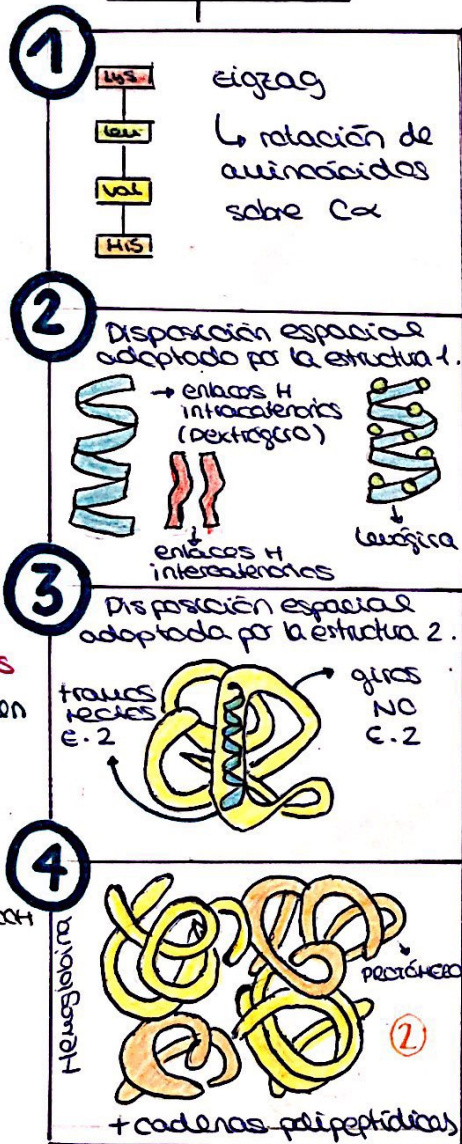 1
Lys
leu
val
His
zigzag
↳ rotación de
aminoácidos
sobre Cα
2
Disposición espacial
adoptado por la estructura 1.
→ enlaces H
intracatenarios
(Dextrógiro)
levógira
enlaces H
intercatenarios
3
Disposición espacial
adoptada por la estructura 2.
s
en
tramos
rectos
E.2
giros
NO
E.2
4
OH
Hemoglobina
PROTÓMERO
2
+ cadenas polipeptídicas